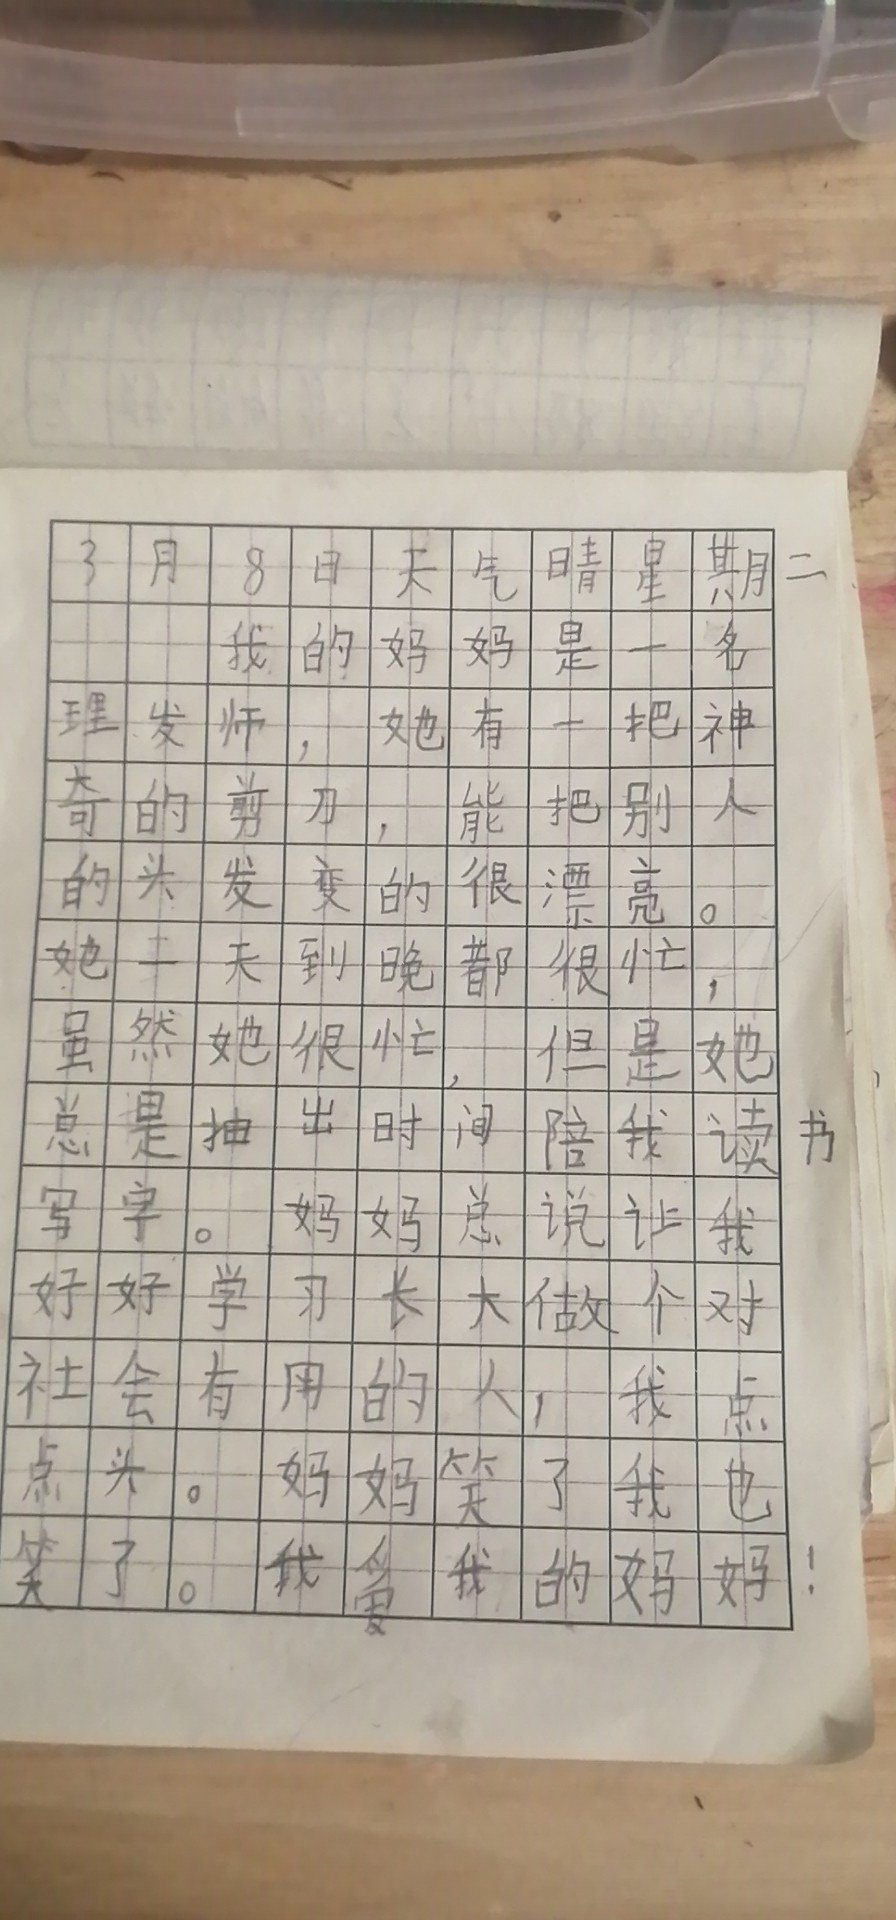 3月8日天气晴星期二
我的妈妈是一名
理发师，她有一把神
奇的剪刀，能把别人
的头发变的很漂亮。
她一天到晚都很忙，
虽然她很忙，但是她
总是抽出时间陪我读书
写字。妈妈总说让我
好好学习长大做个对
社会有用的人，我点
点头。妈妈笑了我也
笑了。我爱我的妈妈！